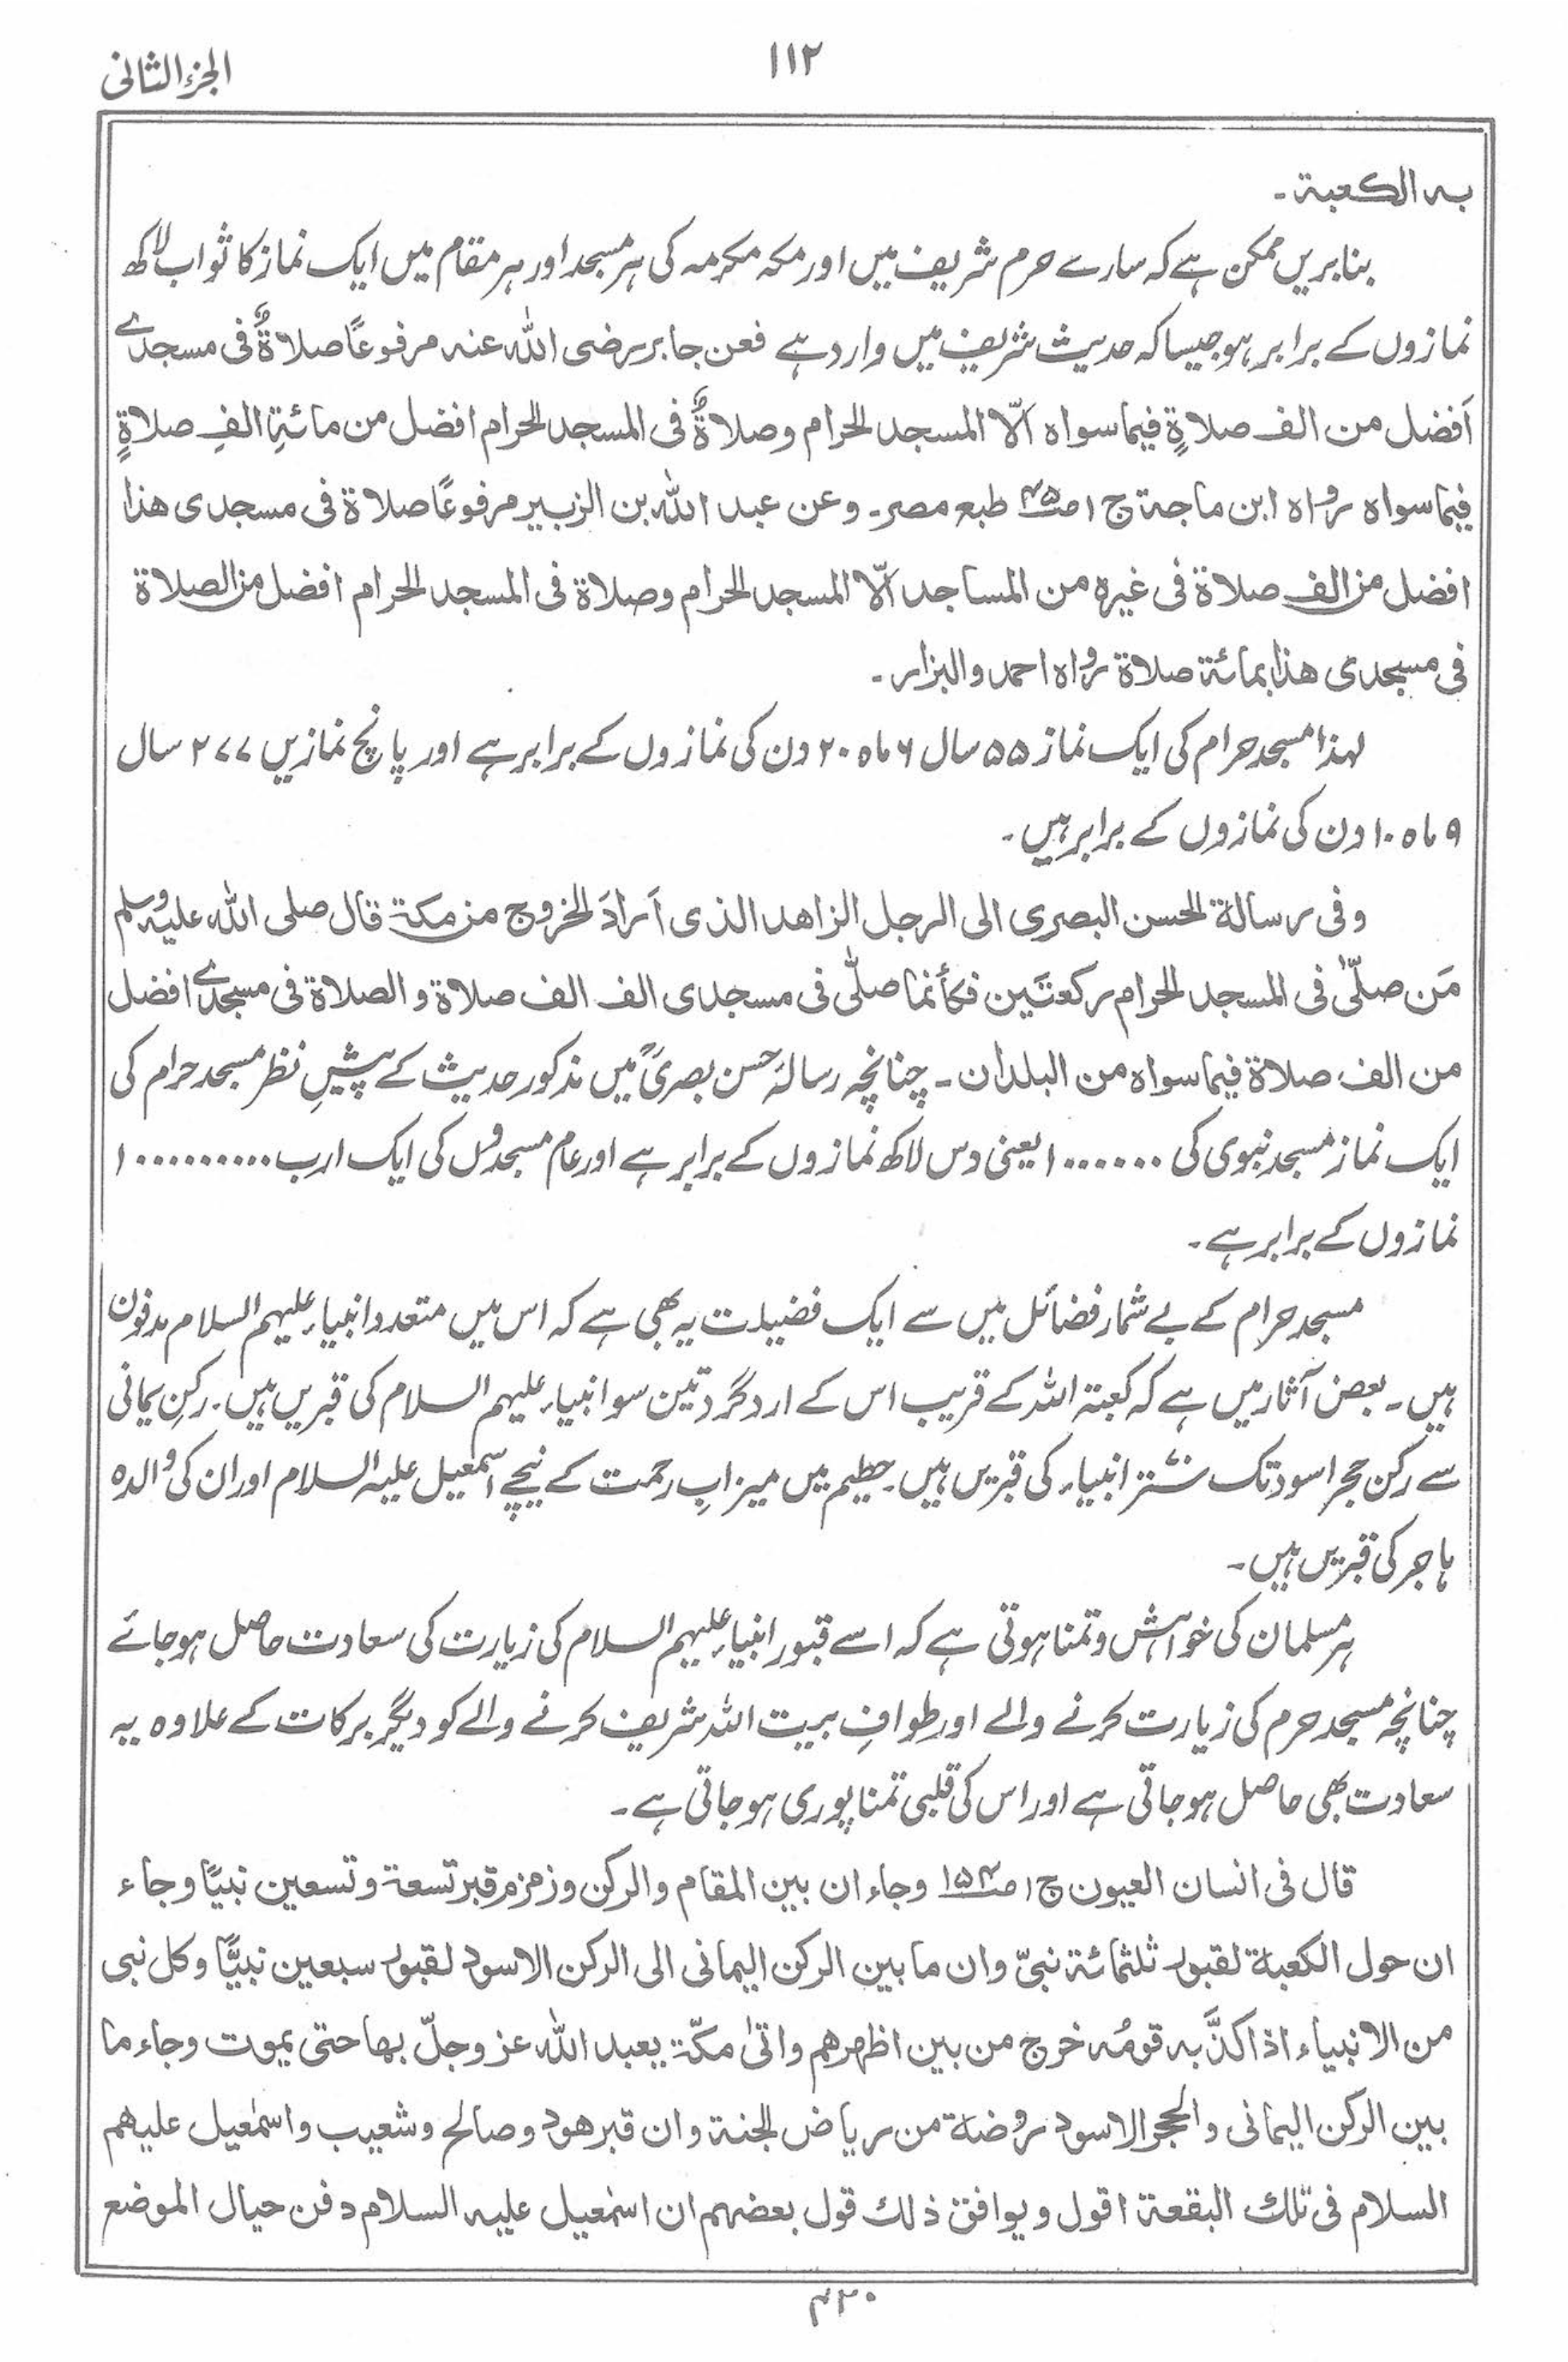 الجزء الثانی
۱۱۲
بہ الکعبۃ ۔
بنابریں ممکن ہے کہ سارے حرم شریف میں اور مکہ مکرمہ کی ہر مسجد اور ہر مقام میں ایک نماز کا ثواب لاکھ
نمازوں کے برابر ہو جیسا کہ حدیث شریف میں وارد ہے فعن جابر رضی اللہ عنہ مرفوعًا صلاۃٌ فی مسجدی
اَفضل من الف صلاۃٍ فیما سواہ الّا المسجد الحرام و صلاۃٌ فی المسجد الحرام افضل من مائۃِ الفِ صلاۃٍ
فیما سواہ رواہ ابن ماجۃ ج ۱ ص۴۵۰ طبع مصر۔ وعن عبد اللہ بن الزبیر مرفوعًا صلاۃ فی مسجدی ھذا
افضل من الف صلاۃ فی غیرہ من المساجد الّا المسجد الحرام وصلاۃ فی المسجد الحرام افضل من الصلاۃ
فی مسجدی ھذا بمائۃ صلاۃ رواہ احمد والبزار ۔
لہذا مسجد حرام کی ایک نماز ۵۵ سال ۶ ماہ ۲۰ دن کی نمازوں کے برابر ہے اور پانچ نمازیں ۲۷۷ سال
۹ ماہ ۱۰ دن کی نمازوں کے برابر ہیں ۔
وفی رسالۃ الحسن البصری الی الرجل الزاھد الذی اَرادَ الخروج من مکۃ قال صلی اللہ علیہ وسلم
مَن صلّٰی فی المسجد الحرام رکعتَین فکأنما صلّٰی فی مسجدی الف الف صلاۃ و الصلاۃ فی مسجدی افضل
من الف صلاۃ فیما سواہ من البلدان ۔ چنانچہ رسالۂ حسن بصریؒ میں مذکور حدیث کے پیشِ نظر مسجد حرام کی
ایک نماز مسجد نبوی کی ۱۰۰۰۰۰۰ یعنی دس لاکھ نمازوں کے برابر ہے اور عام مسجدوں کی ایک ارب ۱۰۰۰۰۰۰۰۰۰
نمازوں کے برابر ہے ۔
مسجد حرام کے بے شمار فضائل میں سے ایک فضیلت یہ بھی ہے کہ اس میں متعدد انبیاء علیہم السلام مدفون
ہیں ۔ بعض آثار میں ہے کہ کعبۃ اللہ کے قریب اس کے ارد گرد تین سو انبیاء علیہم السلام کی قبریں ہیں ۔ رکنِ یمانی
سے رکن حجر اسود تک ستر انبیاء کی قبریں ہیں ۔ حطیم میں میزابِ رحمت کے نیچے اسمٰعیل علیہ السلام اور ان کی والدہ
ہاجر کی قبریں ہیں ۔
ہر مسلمان کی خواہش و تمنا ہوتی ہے کہ اسے قبور انبیاء علیہم السلام کی زیارت کی سعادت حاصل ہو جائے
چنانچہ مسجد حرم کی زیارت کرنے والے اور طوافِ بیت اللہ شریف کرنے والے کو دیگر برکات کے علاوہ یہ
سعادت بھی حاصل ہو جاتی ہے اور اس کی قلبی تمنا پوری ہو جاتی ہے ۔
قال فی انسان العیون ج ۱ ص۱۵۴ وجاء ان بین المقام والرکن وزمزم قبر تسعۃ و تسعین نبیًا وجاء
ان حول الکعبۃ لقبور ثلثمائۃ نبیّ وان ما بین الرکن الیمانی الی الرکن الاسود لقبور سبعین نبیًّا و کل نبی
من الانبیاء اذا کذّبہ قومُہ خرج من بین اظھرھم واتیٰ مکّۃ یعبد اللہ عز وجلّ بھا حتی یموت وجاء ما
بین الرکن الیمانی والحجر الاسود روضۃ من ریاض الجنۃ وان قبر ھود و صالح و شعیب و اسمٰعیل علیھم
السلام فی تلک البقعۃ اقول و یوافق ذلک قول بعضھم ان اسمٰعیل علیہ السلام دفن حیال الموضع
۴۲۰